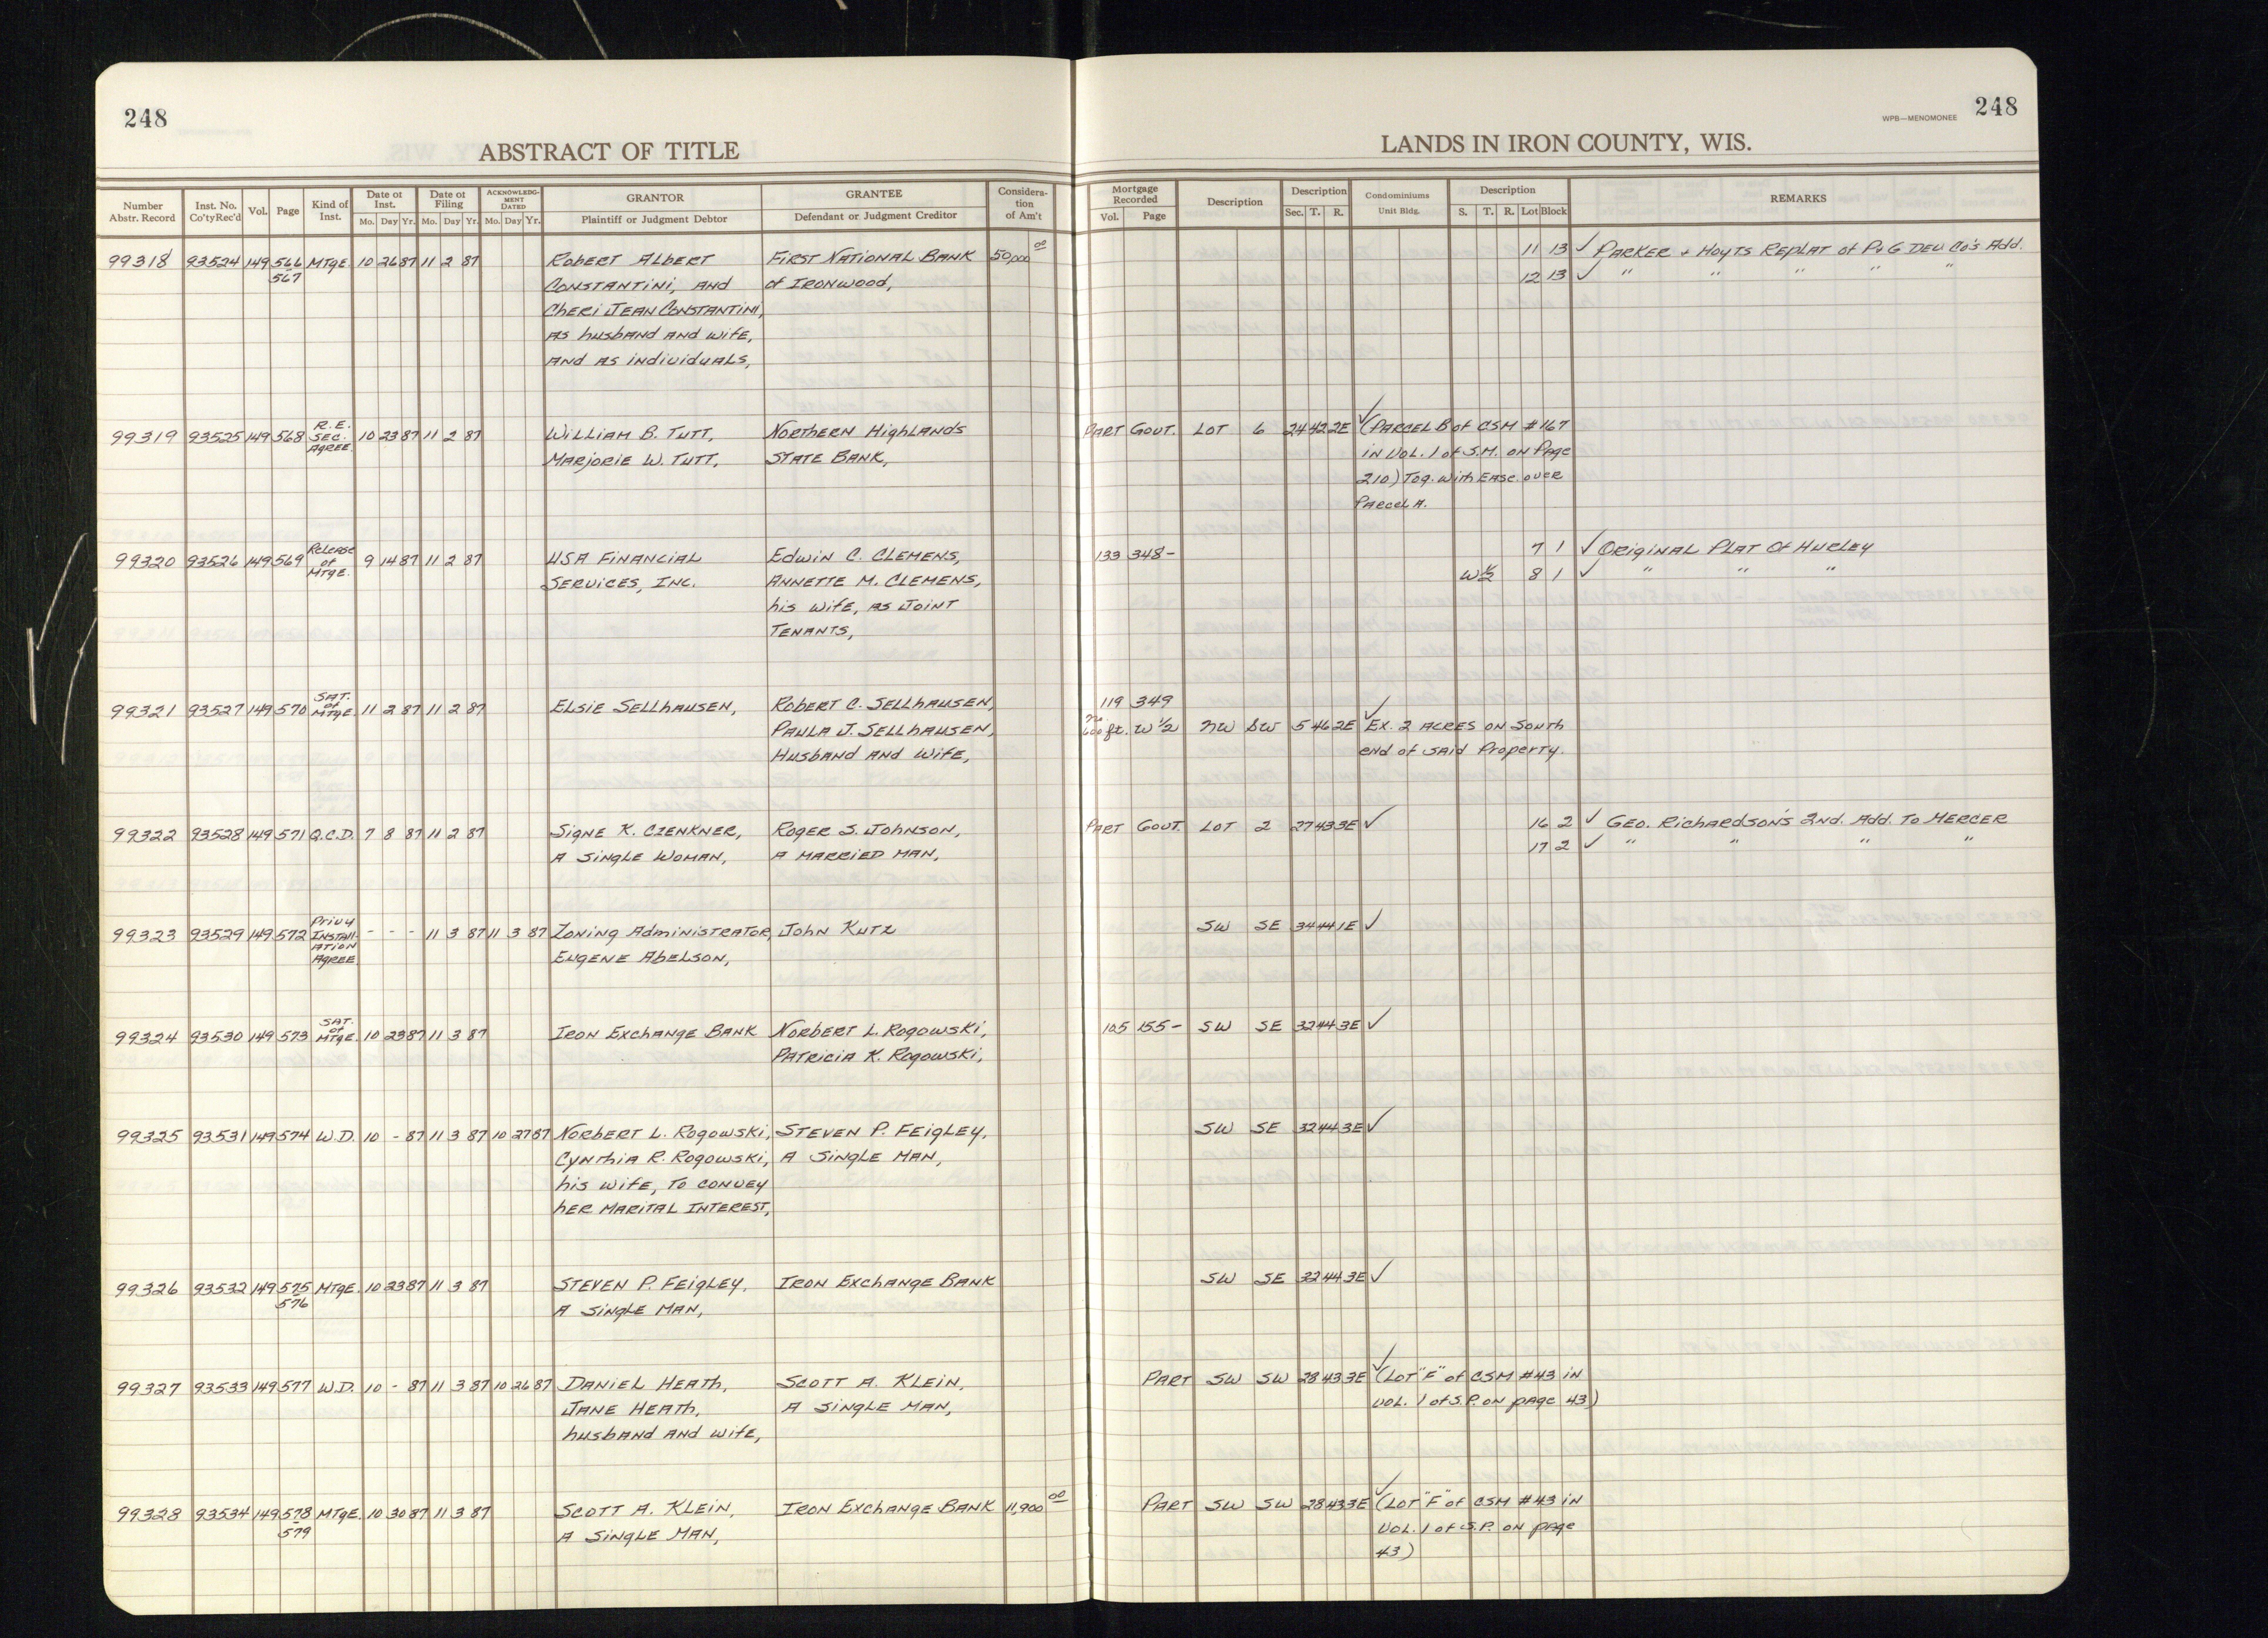 248
248
WPB—MENOMONEE
ABSTRACT OF TITLE
LANDS IN IRON COUNTY, WIS.
Number Abstr. Record | Inst. No. Co'ty Rec'd | Vol. | Page | Kind of Inst. | Date of Inst. Mo. Day Yr. | Date of Filing Mo. Day Yr. | ACKNOWLEDGMENT DATED Mo. Day Yr. | GRANTOR Plaintiff or Judgment Debtor | GRANTEE Defendant or Judgment Creditor | Consideration of Am't | Mortgage Recorded Vol. Page | Description | Description Sec. T. R. | Condominiums Unit Bldg. | Description S. T. R. Lot Block | REMARKS
99318 93524 149 566 MTgE. 10 26 87 11 2 87 Robert Albert First National Bank 50,000 00 11 13 ✓ Parker + Hoyts Replat of P.v G Dev Co's Add.
567 Constantini, and of Ironwood, 12 13 ✓ " " " " "
Cheri Jean Constantini,
as husband and wife,
and as individuals,
99319 93525 149 568 R.E. Sec. Agree. 10 23 87 11 2 87 William B. Tutt, Northern Highlands Part Gout. Lot 6 24 42 2E ✓ (Parcel B of CSM #167
Marjorie W. Tutt, State Bank, in Vol. 1 of S.M. on Page
210) Tog. with Ease. over
Parcel A.
99320 93526 149 569 Release of Mtge. 9 14 87 11 2 87 USA Financial Edwin C. Clemens, 133 348- 7 1 ✓ Original Plat Of Hurley
Services, Inc. Annette M. Clemens, W 1/2 8 1 ✓ " " "
his wife, as Joint
Tenants,
99321 93527 149 570 Sat. of Mtge. 11 2 87 11 2 87 Elsie Sellhausen, Robert C. Sellhausen, 119 349
Paula J. Sellhausen, N. 600 ft. W 1/2 NW SW 5 46 2E ✓ Ex. 2 acres on South
Husband and Wife, end of said Property.
99322 93528 149 571 Q.C.D. 7 8 87 11 2 87 Signe K. Czenkner, Roger S. Johnson, Part Gout. Lot 2 27 43 3E ✓ 16 2 ✓ Geo. Richardson's 2nd. Add. To Mercer
a single woman, a married man, 17 2 ✓ " " " "
99323 93529 149 572 Privy Installation Agree. - - - 11 3 87 11 3 87 Zoning Administrator, John Kutz SW SE 34 44 1E ✓
Eugene Abelson,
99324 93530 149 573 Sat. of Mtge. 10 23 87 11 3 87 Iron Exchange Bank Norbert L. Rogowski, 105 155- SW SE 32 44 3E ✓
Patricia K. Rogowski,
99325 93531 149 574 W.D. 10 - 87 11 3 87 10 27 87 Norbert L. Rogowski, Steven P. Feigley, SW SE 32 44 3E ✓
Cynthia R. Rogowski, a single man,
his wife, to convey
her marital interest,
99326 93532 149 575 Mtge. 10 23 87 11 3 87 Steven P. Feigley, Iron Exchange Bank SW SE 32 44 3E ✓
576 a single man,
99327 93533 149 577 W.D. 10 - 87 11 3 87 10 26 87 Daniel Heath, Scott A. Klein, Part SW SW 28 43 3E ✓ (Lot "F" of CSM #43 in
Jane Heath, a single man, Vol. 1 of S.P. on page 43)
husband and wife,
99328 93534 149 578 Mtge. 10 30 87 11 3 87 Scott A. Klein, Iron Exchange Bank 11,900 00 Part SW SW 28 43 3E ✓ (Lot "F" of CSM #43 in
579 a single man, Vol. 1 of S.P. on page
43)